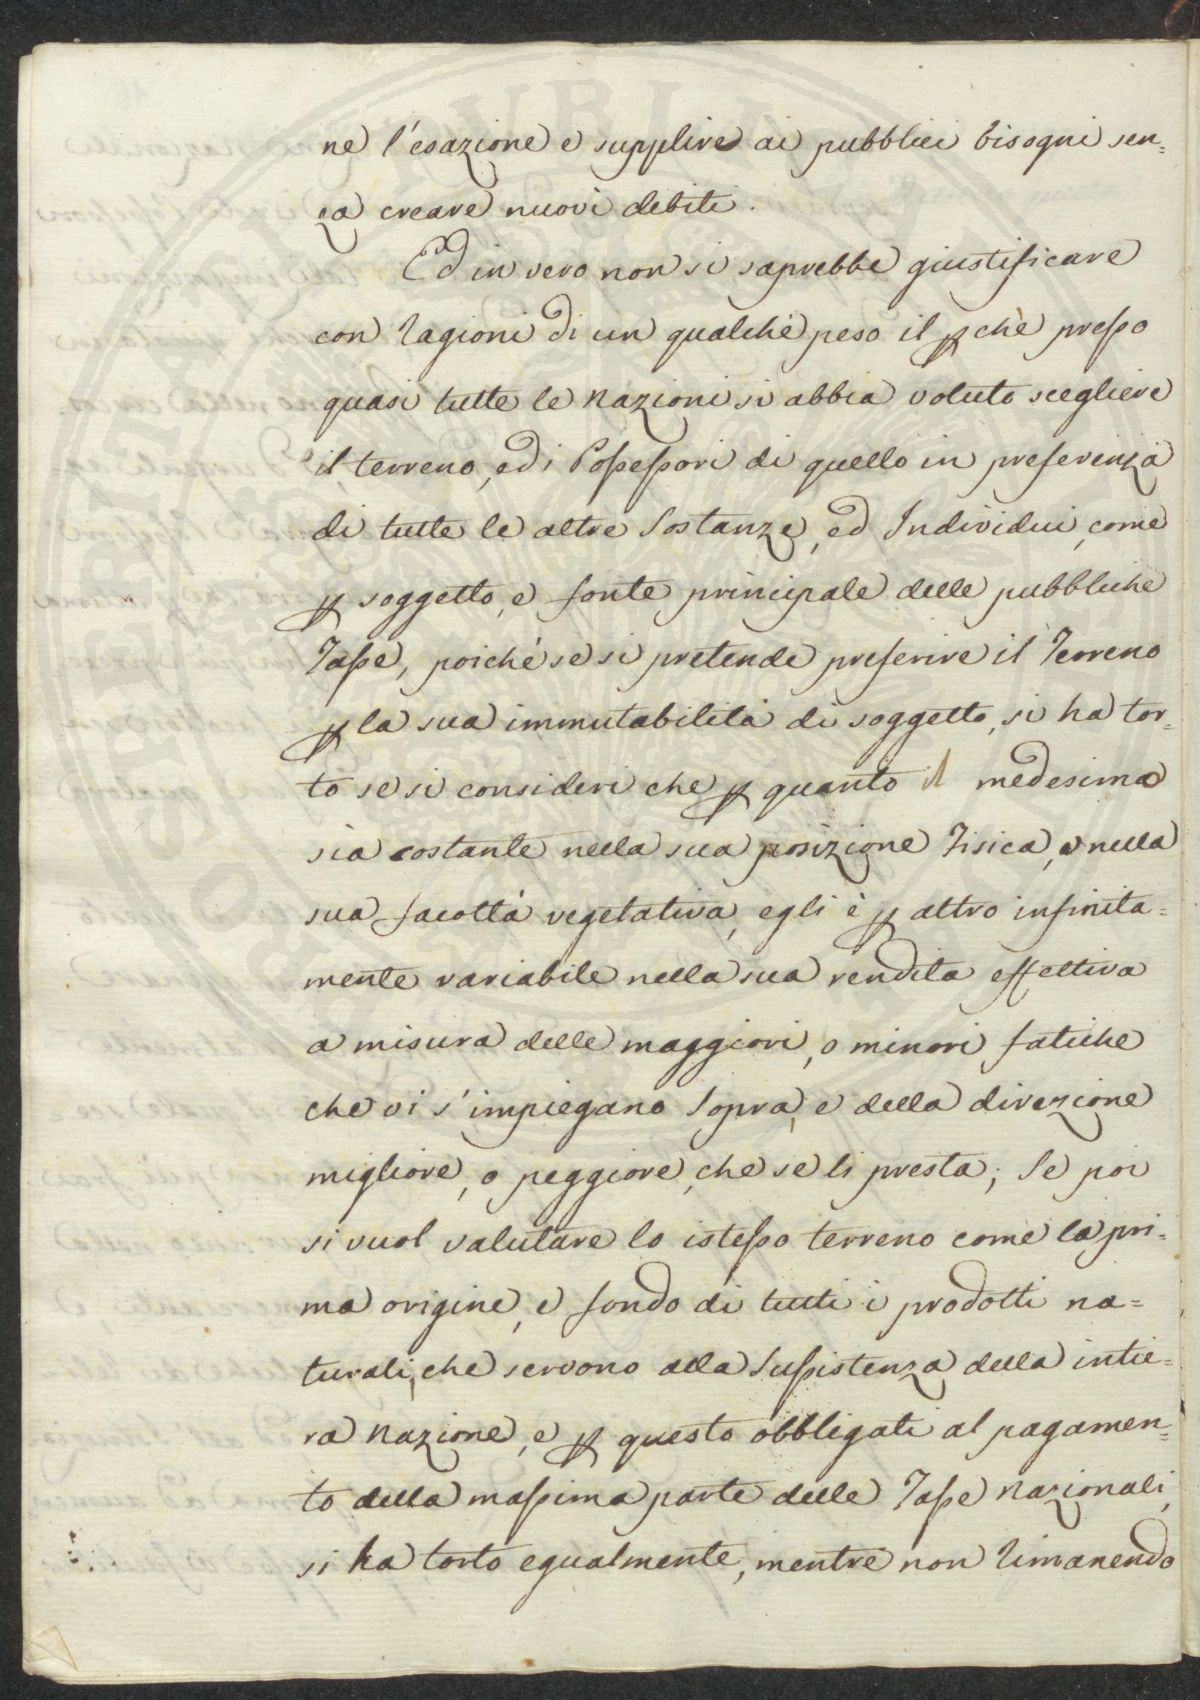 ne l'esazione e supplire ai pubblici bisogni sen=
za creare nuovi debiti.
Ed in vero non si saprebbe giustificare
con ragioni di un qualche peso il p chè presso
quasi tutte le Nazioni si abbia voluto scegliere
il terreno, ed i Possessori di quello in preferenza
di tutte le altre Sostanze, ed Individui, come
p soggetto, e fonte principale delle pubbliche
Tasse, poiché se si pretende preferire il Terreno
p la sua immutabilità di soggetto, si ha tor=
to se si consideri che p quanto il medesimo
sia costante nella sua posizione Fisica, e nella
sua facoltà vegetativa, egli è p altro infinita=
mente variabile nella sua rendita effettiva
a misura delle maggiori, o minori fatiche
che vi s'impiegano Sopra, e della direzione
migliore, o peggiore, che se li presta; Se poi
si vuol valutare lo istesso terreno come la pri=
ma origine, e fondo di tutti i prodotti na=
turali, che servono alla Sussistenza della intie=
ra Nazione, e p questo obbligati al pagamen=
to della massima parte delle Tasse Nazionali,
si ha torto egualmente, mentre non rimanendo